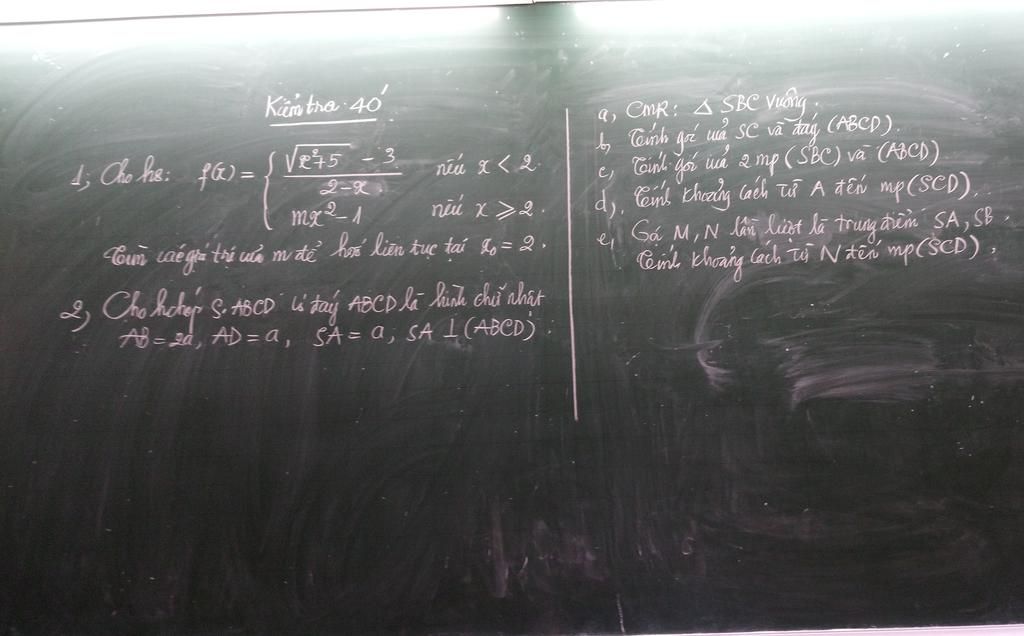 Kiểm tra 40'
1, Cho hs: f(x) = { (√(x²+5) - 3)/(2-x) nếu x < 2.
mx² - 1 nếu x ⩾ 2.
Tìm các giá trị của m để hs liên tục tại x₀ = 2.
2, Cho hchóp S.ABCD có đáy ABCD là hình chữ nhật
AB = 2a, AD = a, SA = a, SA ⊥ (ABCD).
a, CMR: Δ SBC vuông.
b, Tính góc của SC và đáy (ABCD).
c, Tính góc của 2 mp (SBC) và (ABCD)
d, Tính khoảng cách từ A đến mp (SCD).
e, Gọi M, N lần lượt là trung điểm SA, SB.
Tính khoảng cách từ N đến mp (SCD).